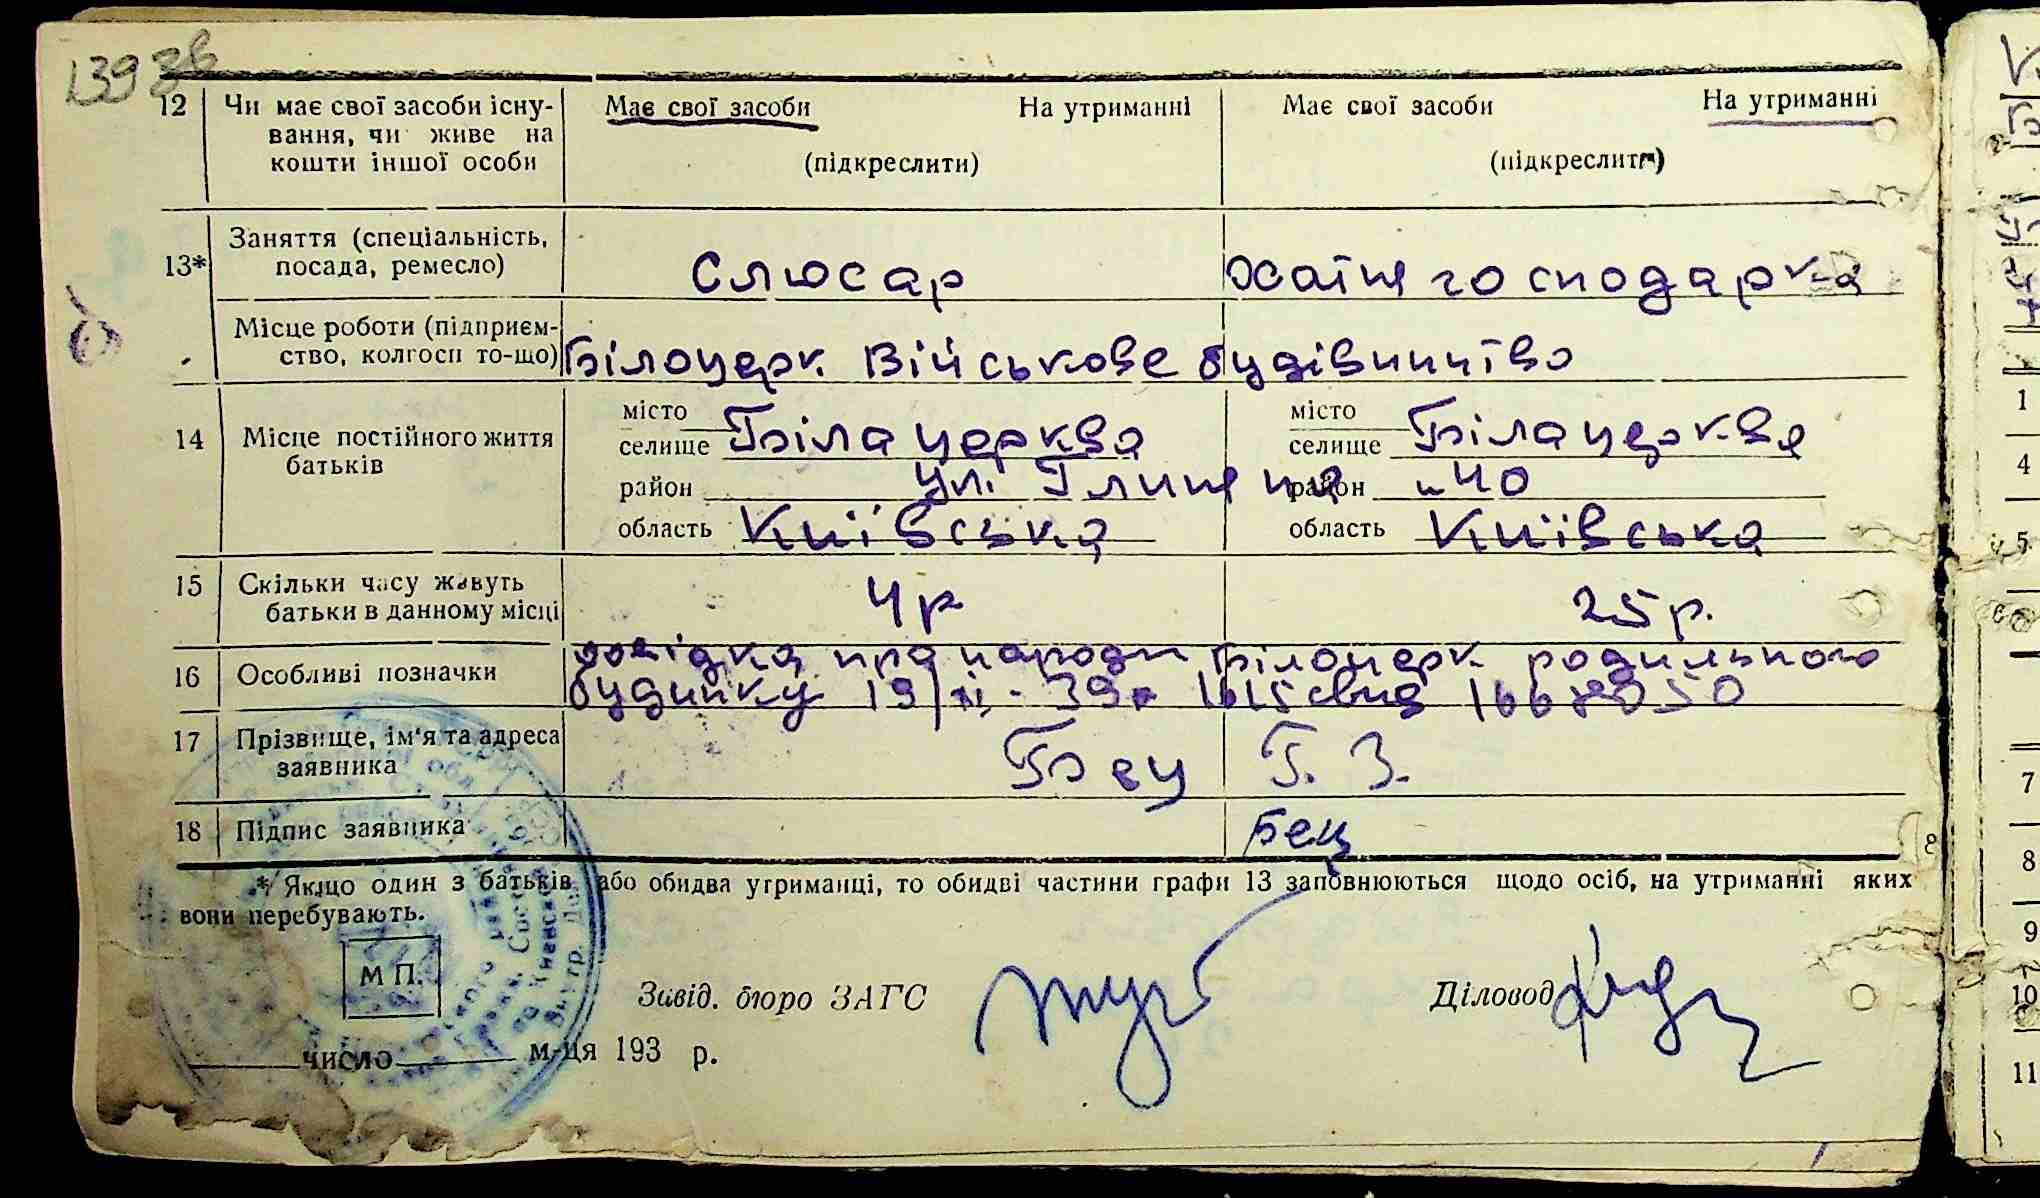 139 зв
12 Чи має свої засоби існу- Має свої засоби На утриманні Має свої засоби На утриманні
вання, чи живе на
кошти іншої особи (підкреслити) (підкреслити)
Заняття (спеціальність,
13* посада, ремесло) Слюсар хатня господарка
Місце роботи (підприєм-
ство, колгосп то-що) Білоцерк. Військове будівництво
місто місто
14 Місце постійного життя селище Біла церква селище Біла церква
батьків район ул. район 40
область Київська область Київська
15 Скільки часу живуть 4 р 25 р.
батьки в данному місці
довідка про народж Білоцерк родильного
16 Особливі позначки будинку
17 Прізвище, ім'я та адреса Бец Г. З.
заявника
18 Підпис заявника Бец
*/ Якщо один з батьків або обидва утриманці, то обидві частини графи 13 заповнюються щодо осіб, на утриманні яких
вони перебувають.
М П.
Завід. бюро ЗАГС Діловод
число м-ця 193 р.
1
4
5
7
8
9
10
11